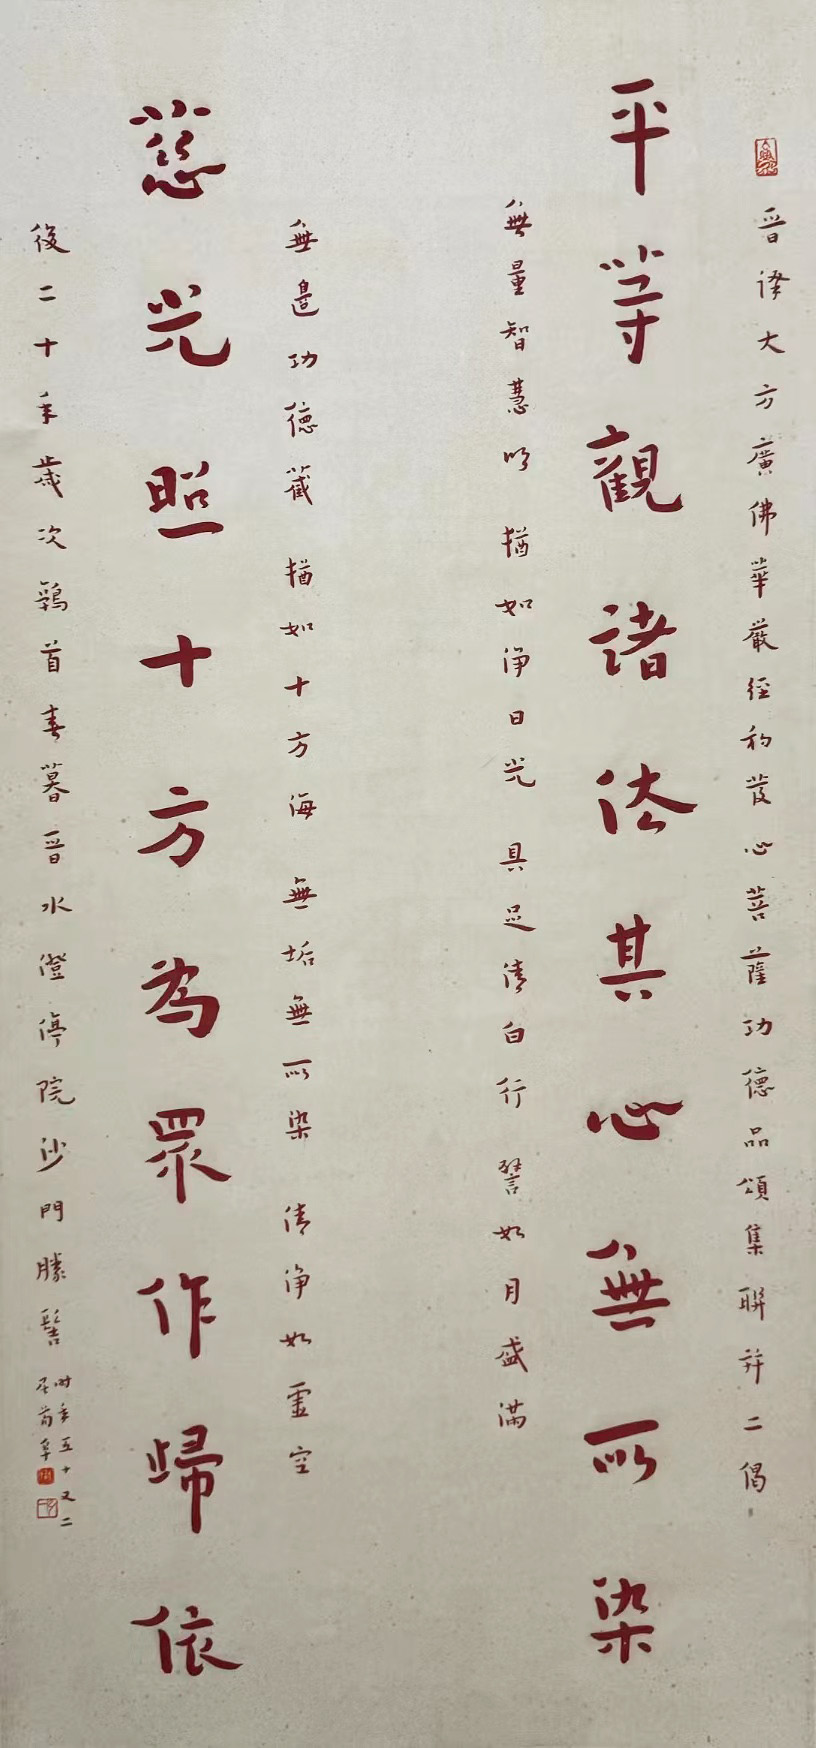 晉譯大方廣佛華嚴經初發心菩薩功德品頌集聯并二偈
平等觀諸法其心無所染
無量智慧明 猶如淨日光 具足清白行 譬如月盛滿
無邊功德藏 猶如十方海 無垢無所染 清淨如虛空
慈光照十方為眾作歸依
後二十年歲次鶉首春暮晉水澄停院沙門勝髻
時年五十又二
居茀阜